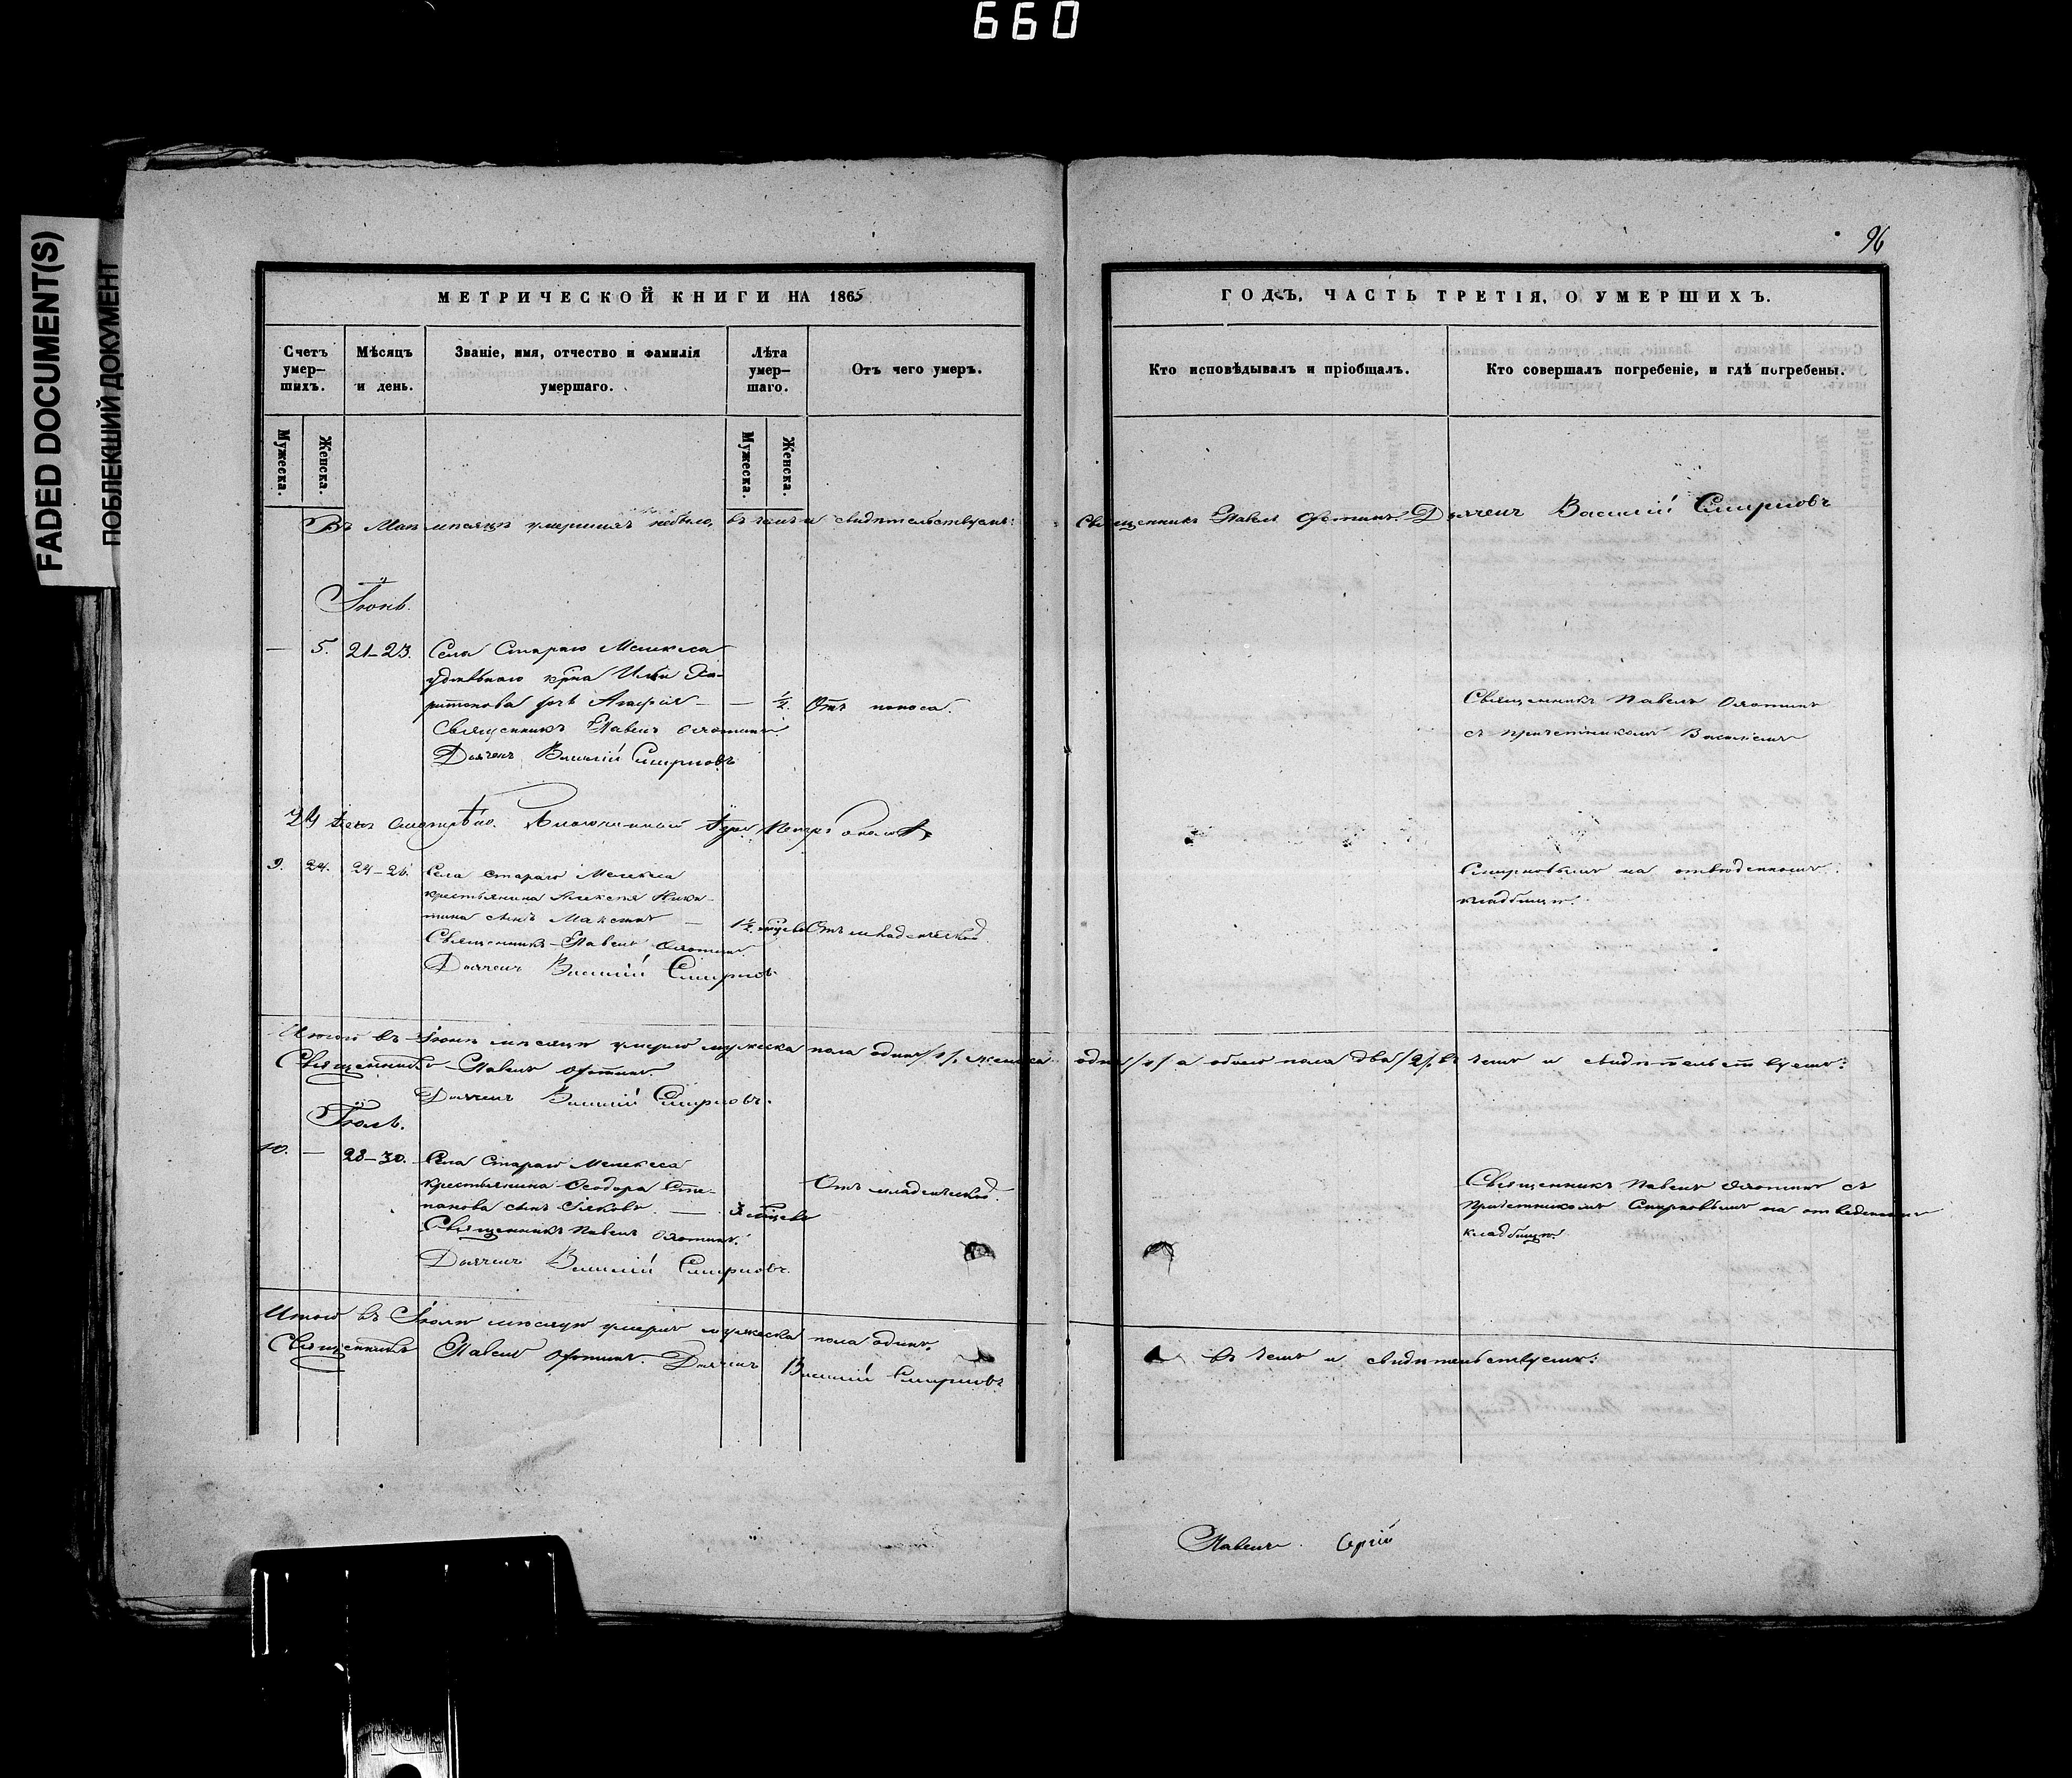 660
FADED DOCUMENT(S)
ПОБЛЕКШИЙ ДОКУМЕНТ
96
МЕТРИЧЕСКОЙ КНИГИ НА 1865
Счетъ умер-шихъ.
Мѣсяцъ и день.
Званіе, имя, отчество и фамилія умершаго.
Лѣта умер-шаго.
Отъ чего умеръ.
Мужеска.
Женска.
Мужеска.
Женска.
ГОДЪ, ЧАСТЬ ТРЕТІЯ, О УМЕРШИХЪ.
Кто исповѣдывалъ и пріобщалъ.
Кто совершалъ погребеніе, и гдѣ погребены.
Въ Маѣ мѣсяцѣ умершихъ небыло, въ чемъ и свидѣтельствуемъ: Священникъ Павелъ Дьячекъ Василій Смирновъ
Іюнь.
— 5. 21–23. Села Стараго Мелекеса
удѣльнаго Ильи Ха-
ритонова дочь — — ½. Отъ поноса.
Священникъ Павелъ
Дьячекъ Василій Смирновъ
Священникъ Павелъ
съ причетникомъ Василіемъ
9. 24. 24–26. Села Стараго Мелекеса
крестьянина Алексѣя Ники-
тина сынъ Максимъ — 1½ Отъ младенческой
Священникъ Павелъ
Дьячекъ Василій Смирновъ
Смирновымъ на отведенномъ
кладбищѣ.
Итого въ Іюнѣ мѣсяцѣ умерло мужеска пола одинъ /1/, женска одна /1/ а обоего пола два /2/, въ чемъ и свидѣтельствуемъ:
Священникъ Павелъ
Дьячекъ Василій Смирновъ.
Іюль.
10. — 28–30. Села Стараго Мелекеса
крестьянина Ѳеодора Сте-
панова сынъ Іяковъ — Отъ младенческой.
Священникъ Павелъ
Дьячекъ Василій Смирновъ.
Священникъ Павелъ съ
причетникомъ Смирновымъ на отведенномъ
кладбищѣ.
Итого въ Іюлѣ мѣсяцѣ умеръ мужеска пола одинъ, въ чемъ и свидѣтельствуемъ:
Священникъ Павелъ Дьячекъ Василій Смирновъ
Павелъ Сергій